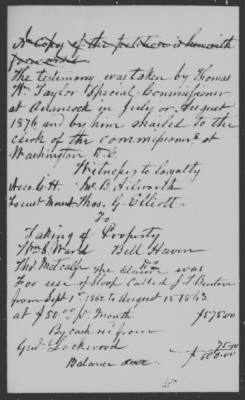 A Copy of the petition is herewith
forwarded
The testimony was taken by Thomas
W. Taylor Special Commissioner
at in July or August
1876 and by him mailed to the
clerk of the commissioners at
Washington D.C.
Witnesses to loyalty
Acco C.H. Mc. D. Ailworth
Locust Mount Thos. G. Elliott
To
Taking of Property
Wm S Ward Bell Haven
Thos Metcalf
The claim was
For use of Sloop Called J. T. Burton
from Sept 1st 1862 to August 15 1863
at $50.00 pr Month $575.00
By cash rc from
Genl Lockwood 75.00
Balance due $500.00